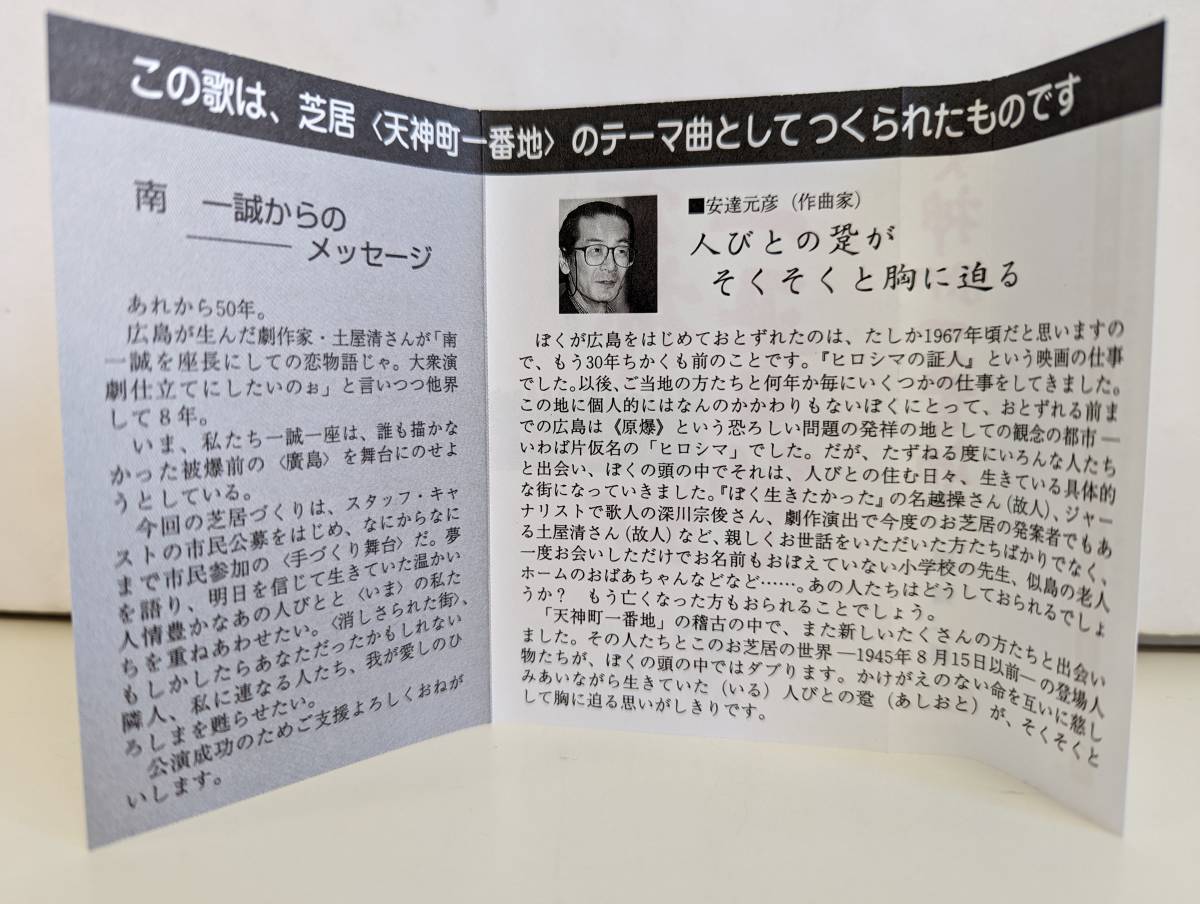 この歌は、芝居〈天神町一番地〉のテーマ曲としてつくられたものです
南 一誠からの
メッセージ
あれから50年。
広島が生んだ劇作家・土屋清さんが「南
一誠を座長にしての恋物語じゃ。大衆演
劇仕立てにしたいのぉ」と言いつつ他界
して8年。
いま、私たち一誠一座は、誰も描かな
かった被爆前の〈廣島〉を舞台にのせよ
うとしている。
今回の芝居づくりは、スタッフ・キャ
ストの市民公募をはじめ、なにからなに
まで市民参加の〈手づくり舞台〉だ。夢
を語り、明日を信じて生きていた温かい
人情豊かなあの人びとと〈いま〉の私た
ちを重ねあわせたい。〈消しさられた街〉、
もしかしたらあなただったかもしれない
隣人、私に連なる人たち、我が愛しのひ
ろしまを甦らせたい。
公演成功のためご支援よろしくおねが
いします。
■安達元彦（作曲家）
人びとの跫が
そくそくと胸に迫る
ぼくが広島をはじめておとずれたのは、たしか1967年頃だと思いますの
で、もう30年ちかくも前のことです。『ヒロシマの証人』という映画の仕事
でした。以後、ご当地の方たちと何年か毎にいくつかの仕事をしてきました。
この地に個人的にはなんのかかわりもないぼくにとって、おとずれる前ま
での広島は《原爆》という恐ろしい問題の発祥の地としての観念の都市―
いわば片仮名の「ヒロシマ」でした。だが、たずねる度にいろんな人たち
と出会い、ぼくの頭の中でそれは、人びとの住む日々、生きている具体的
な街になっていきました。『ぼく生きたかった』の名越操さん（故人）、ジャー
ナリストで歌人の深川宗俊さん、劇作演出で今度のお芝居の発案者でもあ
る土屋清さん（故人）など、親しくお世話をいただいた方たちばかりでなく、
一度お会いしただけでお名前もおぼえていない小学校の先生、似島の老人
ホームのおばあちゃんなどなど……。あの人たちはどうしておられるでしょ
うか？ もう亡くなった方もおられることでしょう。
「天神町一番地」の稽古の中で、また新しいたくさんの方たちと出会い
ました。その人たちとこのお芝居の世界―1945年8月15日以前―の登場人
物たちが、ぼくの頭の中ではダブります。かけがえのない命を互いに慈し
みあいながら生きていた（いる）人びとの跫（あしおと）が、そくそくと
して胸に迫る思いがしきりです。